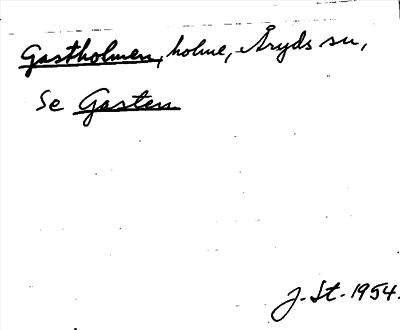 Gastholmen, holme, Åryds sn,
Se Gasten
J. St. 1954.